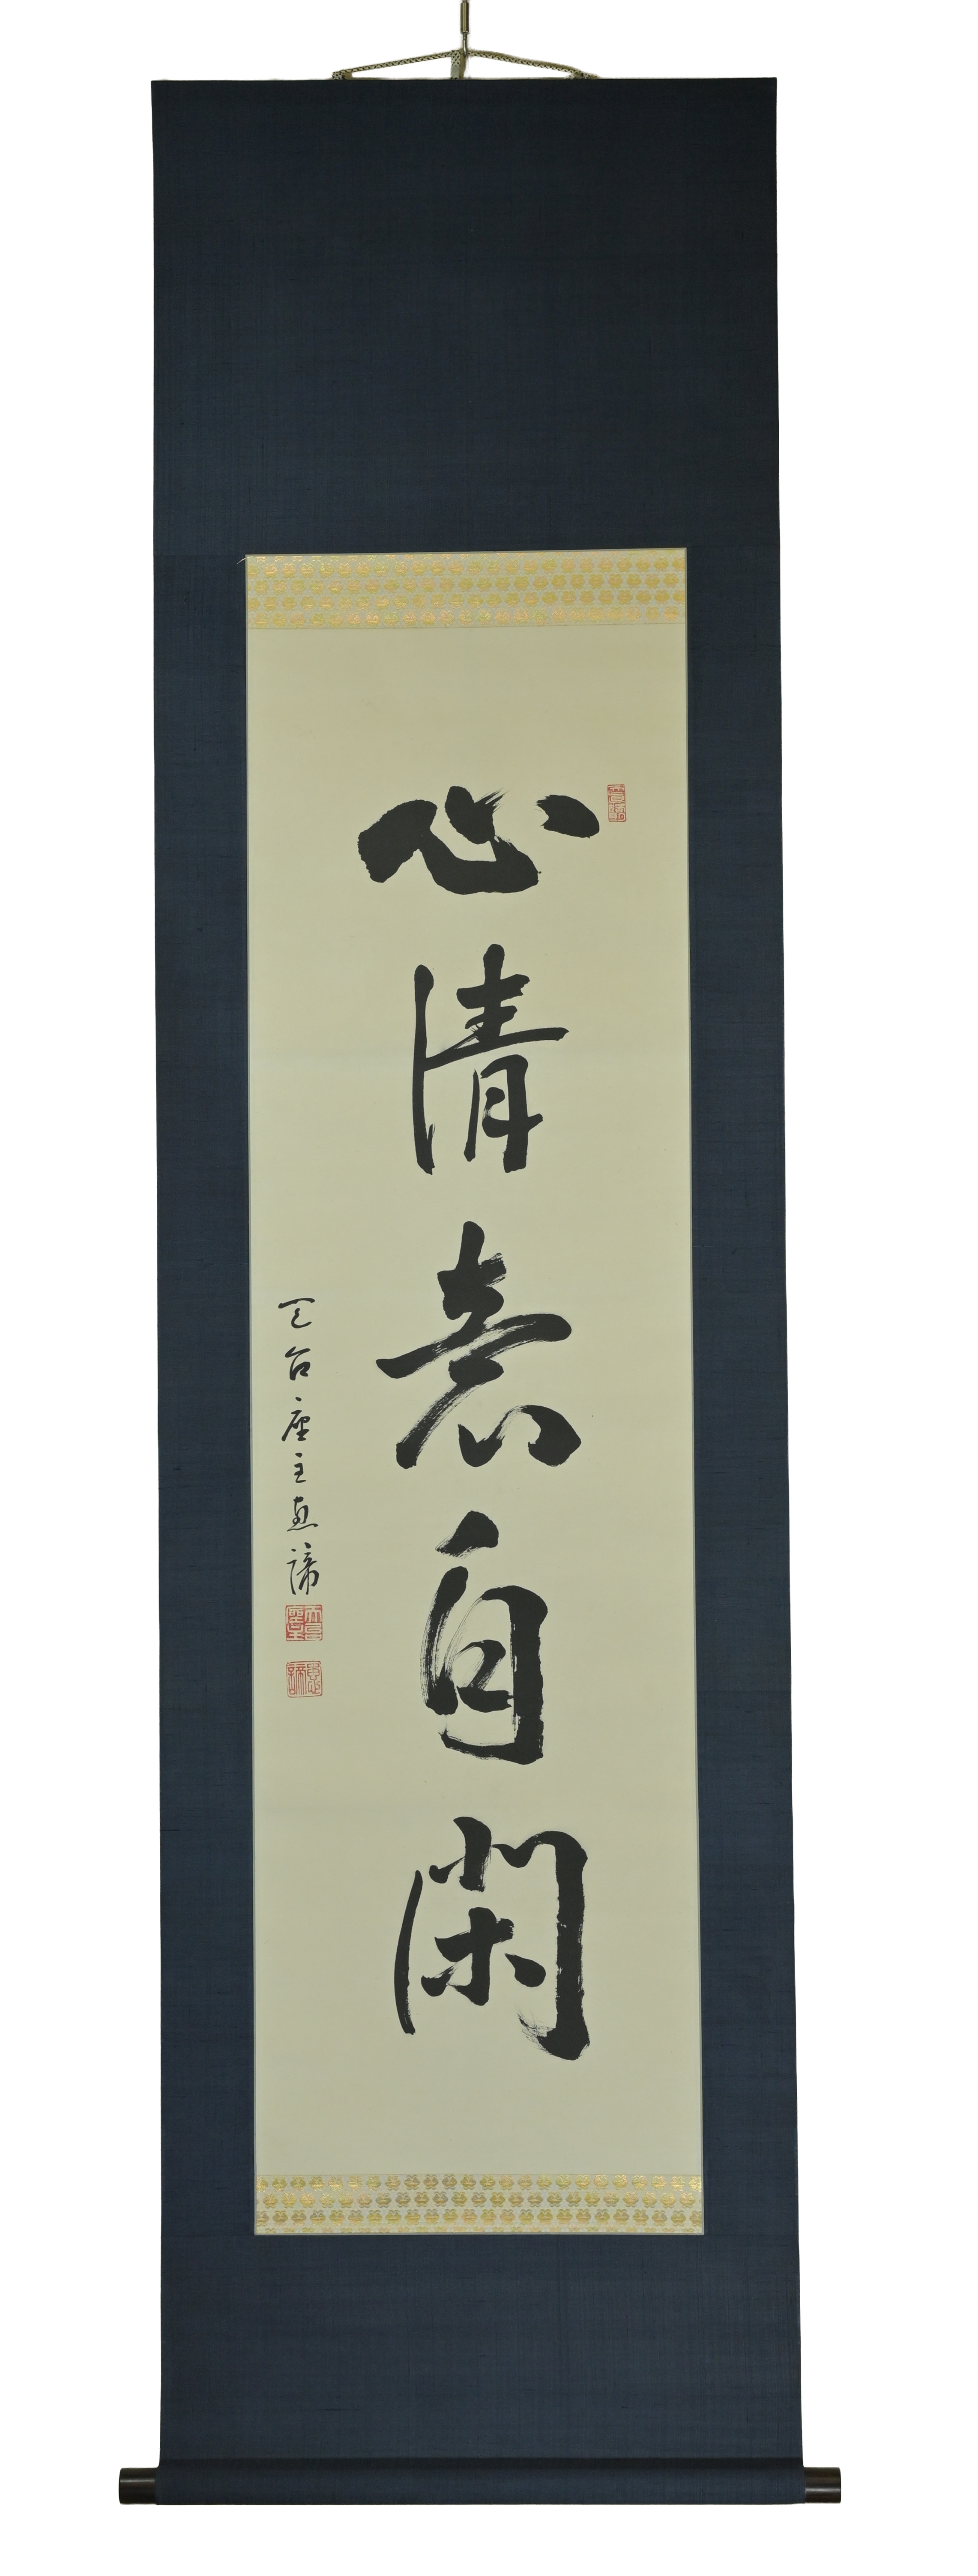 心清意自閑
天台座主恵諦